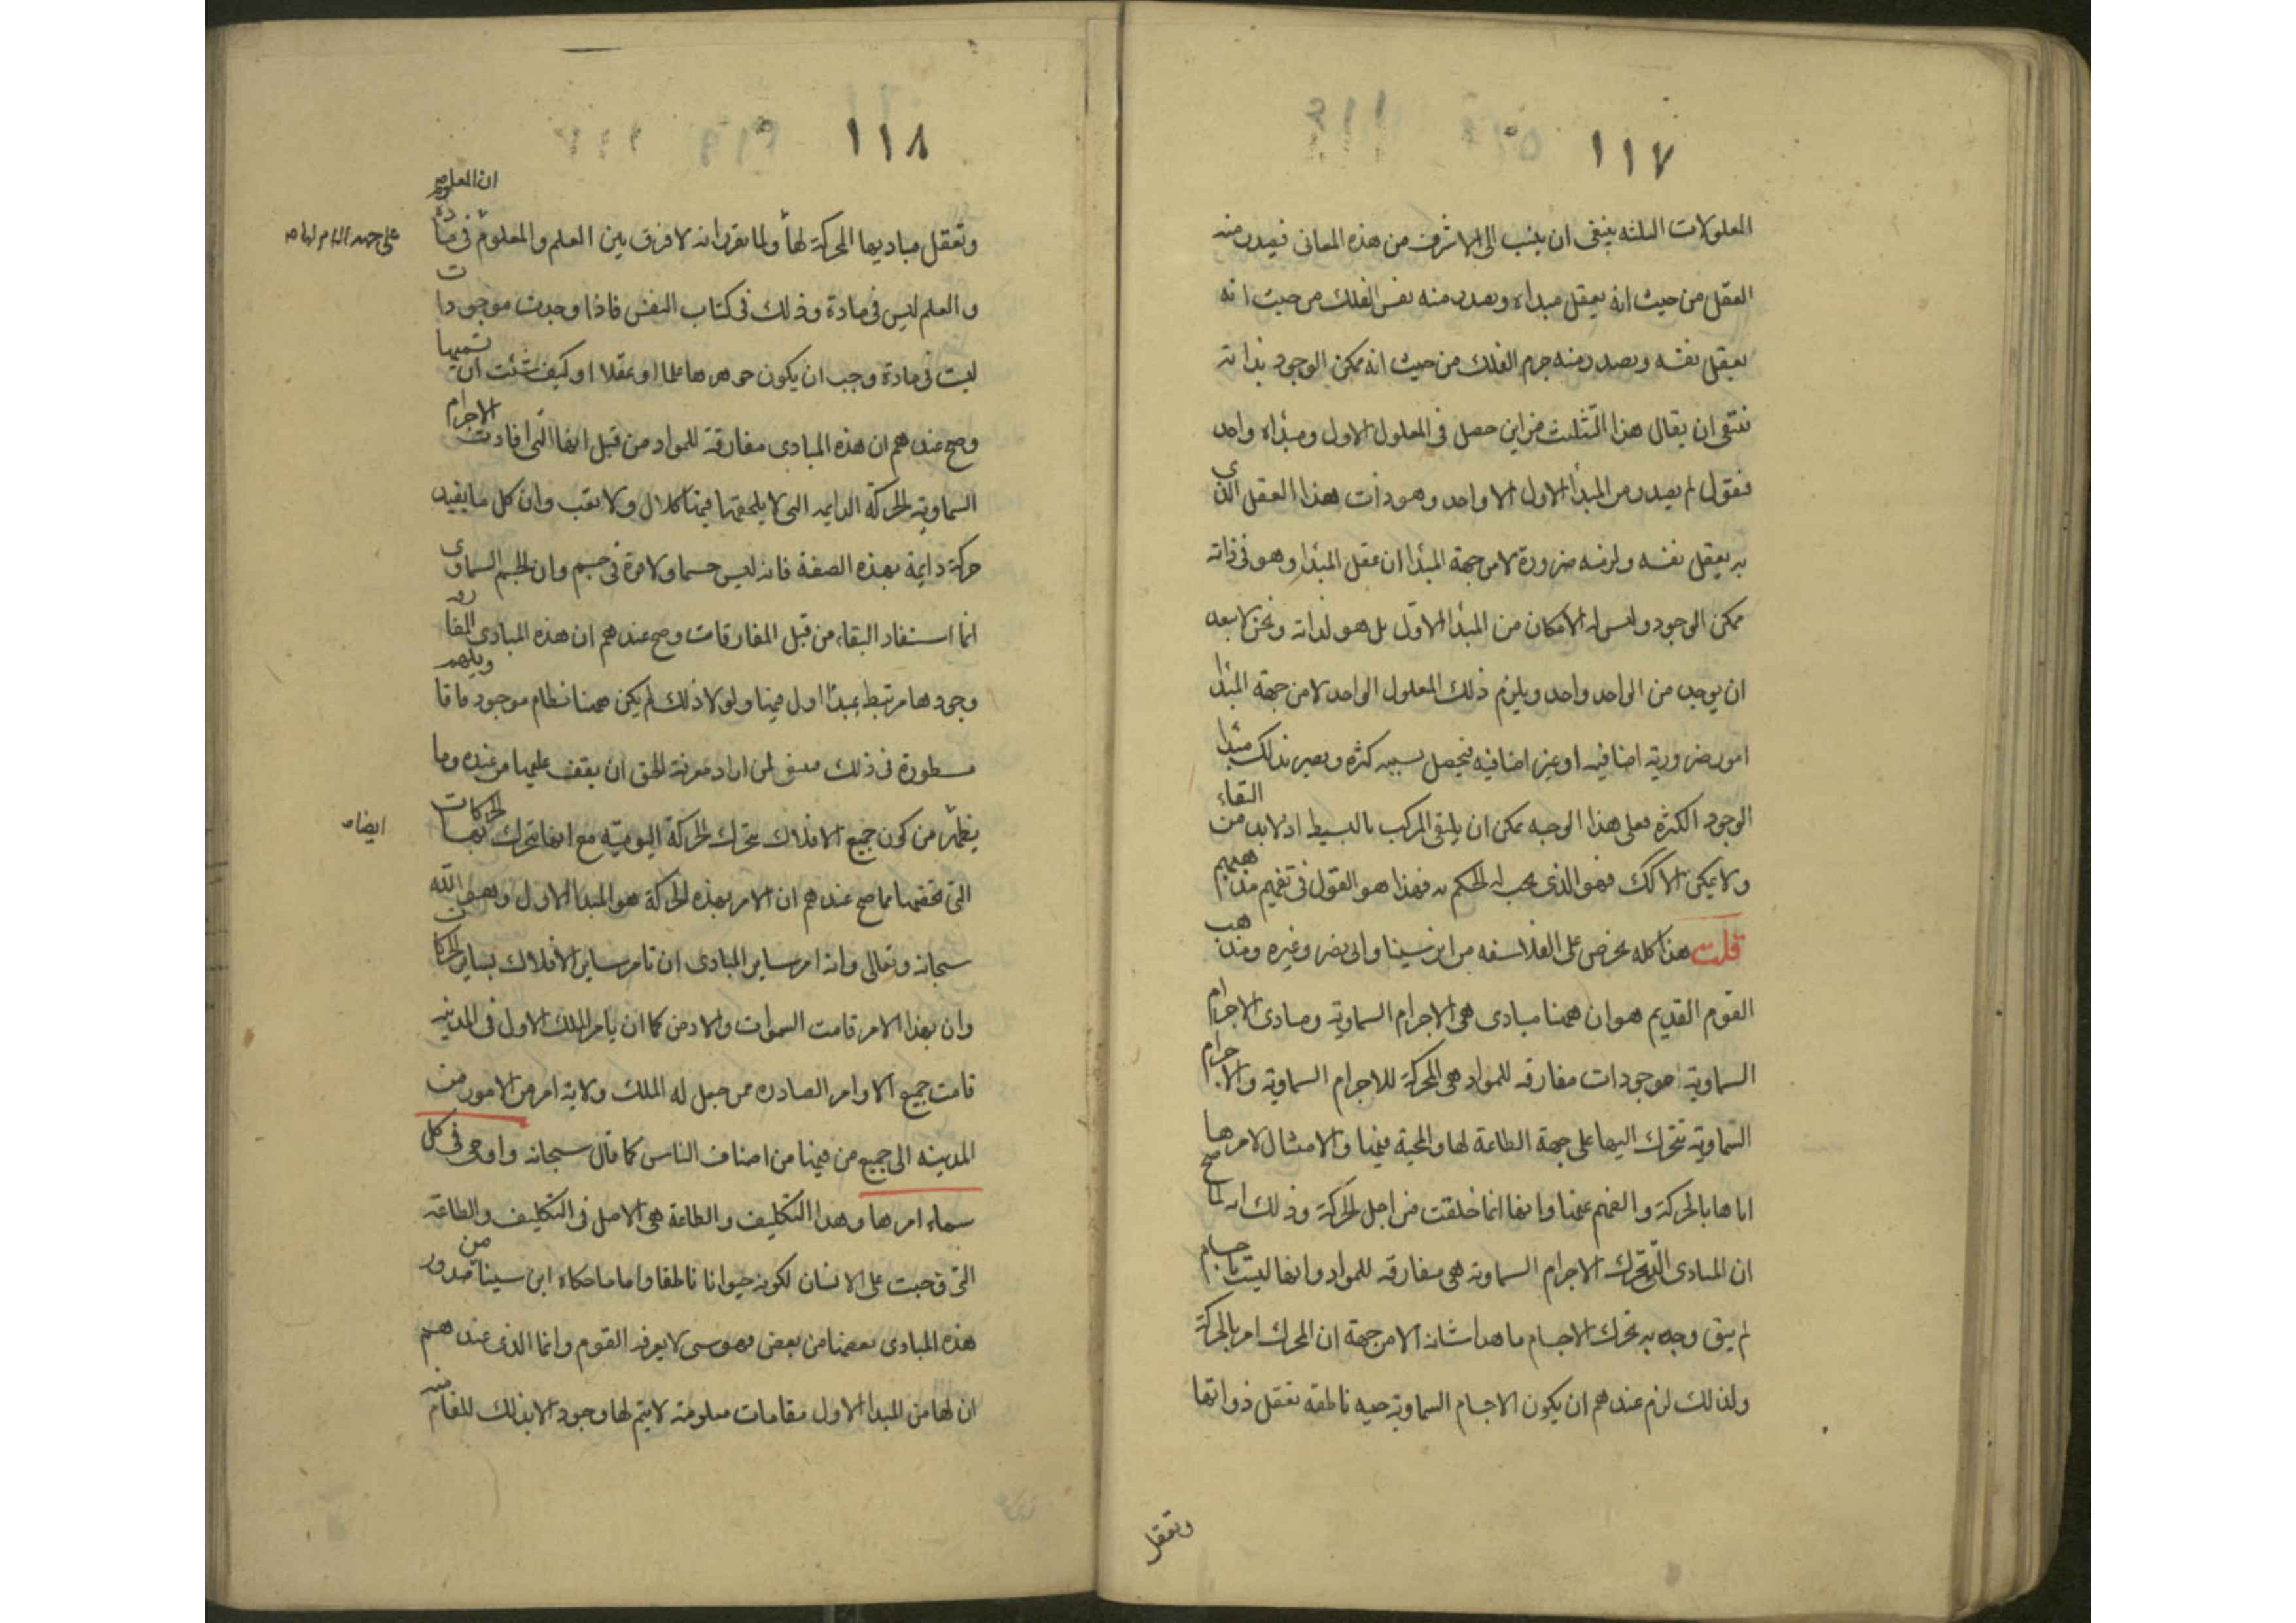 ١١٧
المعلولات الثلثه ينبغى ان ينسب الى الاشرف من هذه المعانى فيصدر منه
العقل من حيث انه يعقل مبداه ويصدر منه نفس الفلك من حيث انه
يعقل نفسه ويصدر منه جرم الفلك من حيث انه ممكن الوجود بذاته
فبقى ان يقال هذا التثليث من اين حصل فى المعلول الاول ومبداه واحد
فنقول لم يصدر من المبدأ الاول الا واحد وهو ذات هذا العقل الذى
به يعقل نفسه ولزمه ضرورة لا من جهة المبدا ان عقل المبدا وهو فى ذاته
ممكن الوجود وليس له الامكان من المبدا الاول بل هو لذاته ونحن لا نبعد
ان يوجد من الواحد واحد ويلزم ذلك المعلول الواحد لا من جهة المبدا
امور ضرورية اضافيه او غير اضافيه فيحصل بسببه كثرة ويصير بذلك مبدا
الوجود الكثرة فعلى هذا الوجه يمكن ان يلتقى المركب بالبسيط اذ لا بد من التقاء
ولا يمكن الا كك فهو الذى يجب له الحكم به فهذا هو القول فى تفهيم مذهبهم
قلت هذا كله تخرص على الفلاسفه من ابن سينا وابى نصر وغيره ومذهب
القوم القديم هو ان ههنا مبادى هى الاجرام السماوية ومبادى الاجرام
السماوية موجودات مفارقه للمواد هى المحركة للاجرام السماوية والاجرام
السماوية تتحرك اليها على جهة الطاعة لها والمحبة فيها والامتثال لامرها
اياها بالحركة والفهم عنها وانها انما خلقت من اجل الحركة وذلك انه لما صح
ان المبادى التى تحرك الاجرام السماويه هى مفارقه للمواد وانها ليست باجسام
لم يبق وجه به تحرك الاجسام ما هذا شانه الا من جهة ان المحرك امر بالحركة
ولذلك لزم عندهم ان يكون الاجسام السماوية حيه ناطقه تعقل ذواتها
وتعقل
١١٨
وتعقل مباديها المحركة لها ولما تقرر انه لا فرق بين العلم والمعلوم فى مادة ان المعلوم
على جهة الامر لها
والعلم ليس فى مادة وذلك فى كتاب النفس فاذا وجدت موجودات
ليست فى مادة وجب ان يكون جوهرها علما او عقلا او كيف شئت ان تسميها
وصح عندهم ان هذه المبادى مفارقة للمواد من قبل انها التى افادت الاجرام
السماوية الحركة الدايمه التى لا يلحقها فيها كلال ولا تعب وان كل ما يفيد
حركة دايمة بهذه الصفة فانه ليس جسما ولا قوة فى جسم وان الجسم السماوى
انما استفاد البقاء من قبل المفارقات وصح عندهم ان هذه المبادى المفارقه
وجودها مرتبط بمبدا اول فيها ولولا ذلك لم يكن ههنا نظام موجود واقاويلهم
مسطورة فى ذلك فينبغى لمن اراد معرفة الحق ان يقف عليها من عنده وما
يظهر من كون جميع الافلاك تتحرك الحركة اليومية مع انها تتحرك بها الحركات
ايضا
التى تخصها مما صح عندهم ان الامر بهذه الحركة هو المبدا الاول وهو الله
سبحانه وتعالى وانه امر ساير المبادى ان تامر ساير الافلاك بساير الحركات
وان بهذا الامر قامت السموات والارض كما ان يامر الملك الاول فى المدينه
قامت جميع الاوامر الصادره ممن جعل له الملك ولاية امر من الامور من
المدينه الى جميع من فيها من اصناف الناس كما قال سبحانه واوحى فى كل
سماء امرها وهذا التكليف والطاعة هى الاصل فى التكليف والطاعة
التى وجبت على الانسان لكونه حيوانا ناطقا واما ما حكاه ابن سينا من صدور
هذه المبادى بعضها من بعض فهو شى لا يعرفه القوم وانما الذى عندهم
ان لها من المبدا الاول مقامات معلومة لا يتم لها وجود الا بذلك المقام منه